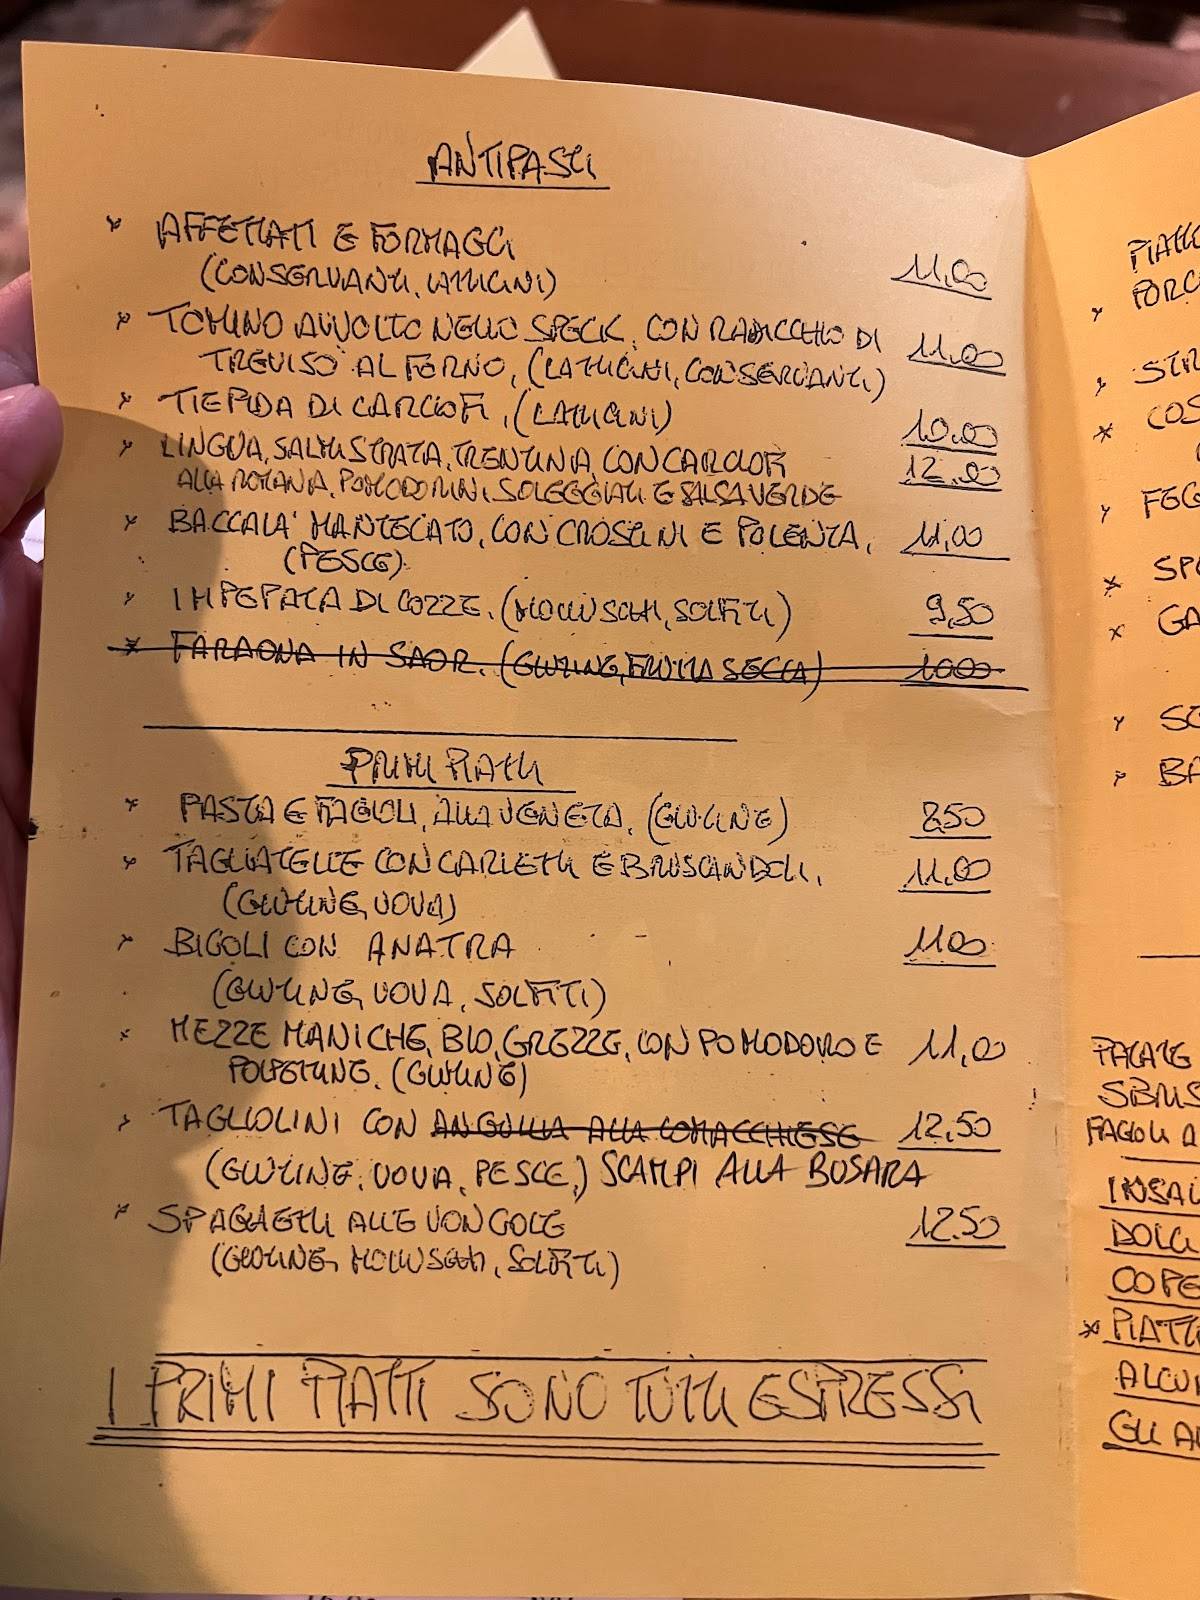 ANTIPASTI
* AFFETTATI E FORMAGGI
(CONSERVANTI, LATTICINI) 11,00
* TOMINO AVVOLTO NELLO SPECK, CON RADICCHIO DI
TREVISO AL FORNO, (LATTICINI, CONSERVANTI) 11,00
* TIEPIDA DI CARCIOFI, (LATTICINI) 10,00
* LINGUA, SALMISTRATA, TRENTINA, CON CARCIOFI 12,00
ALLA ROMANA, POMODORINI SOLEGGIATI E SALSA VERDE
* BACCALA' MANTECATO, CON CROSTINI E POLENTA, 11,00
(PESCE)
* IMPEPATA DI COZZE. (MOLLUSCHI, SOLFITI) 9,50
* FARAONA IN SAOR. (GLUTINE, FRUTTA SECCA) 10,00
PRIMI PIATTI
* PASTA E FAGIOLI, ALLA VENETA. (GLUTINE) 8,50
* TAGLIATELLE CON CARLETTI E BRUSCANDOLI, 11,00
(GLUTINE, UOVA)
* BIGOLI CON ANATRA 11,00
(GLUTINE, UOVA, SOLFITI)
* MEZZE MANICHE, BIO, GREZZE, CON POMODORO E 11,00
POLPETTINE. (GLUTINE)
* TAGLIOLINI CON ANGUILLA ALLA COMACCHIESE 12,50
(GLUTINE, UOVA, PESCE,) SCAMPI ALLA BUSARA
* SPAGHETTI ALLE VONGOLE 12,50
(GLUTINE, MOLLUSCHI, SOLFITI)
I PRIMI PIATTI SONO TUTTI ESPRESSI
PIATTI
PORC
* STR
* COS
* FEG
* SP
* GA
* SE
* BA
PATATE
SBRIS
FAGIOLI A
INSAL
DOLCI
COPE
* PIATTI
ALCU
GLI A